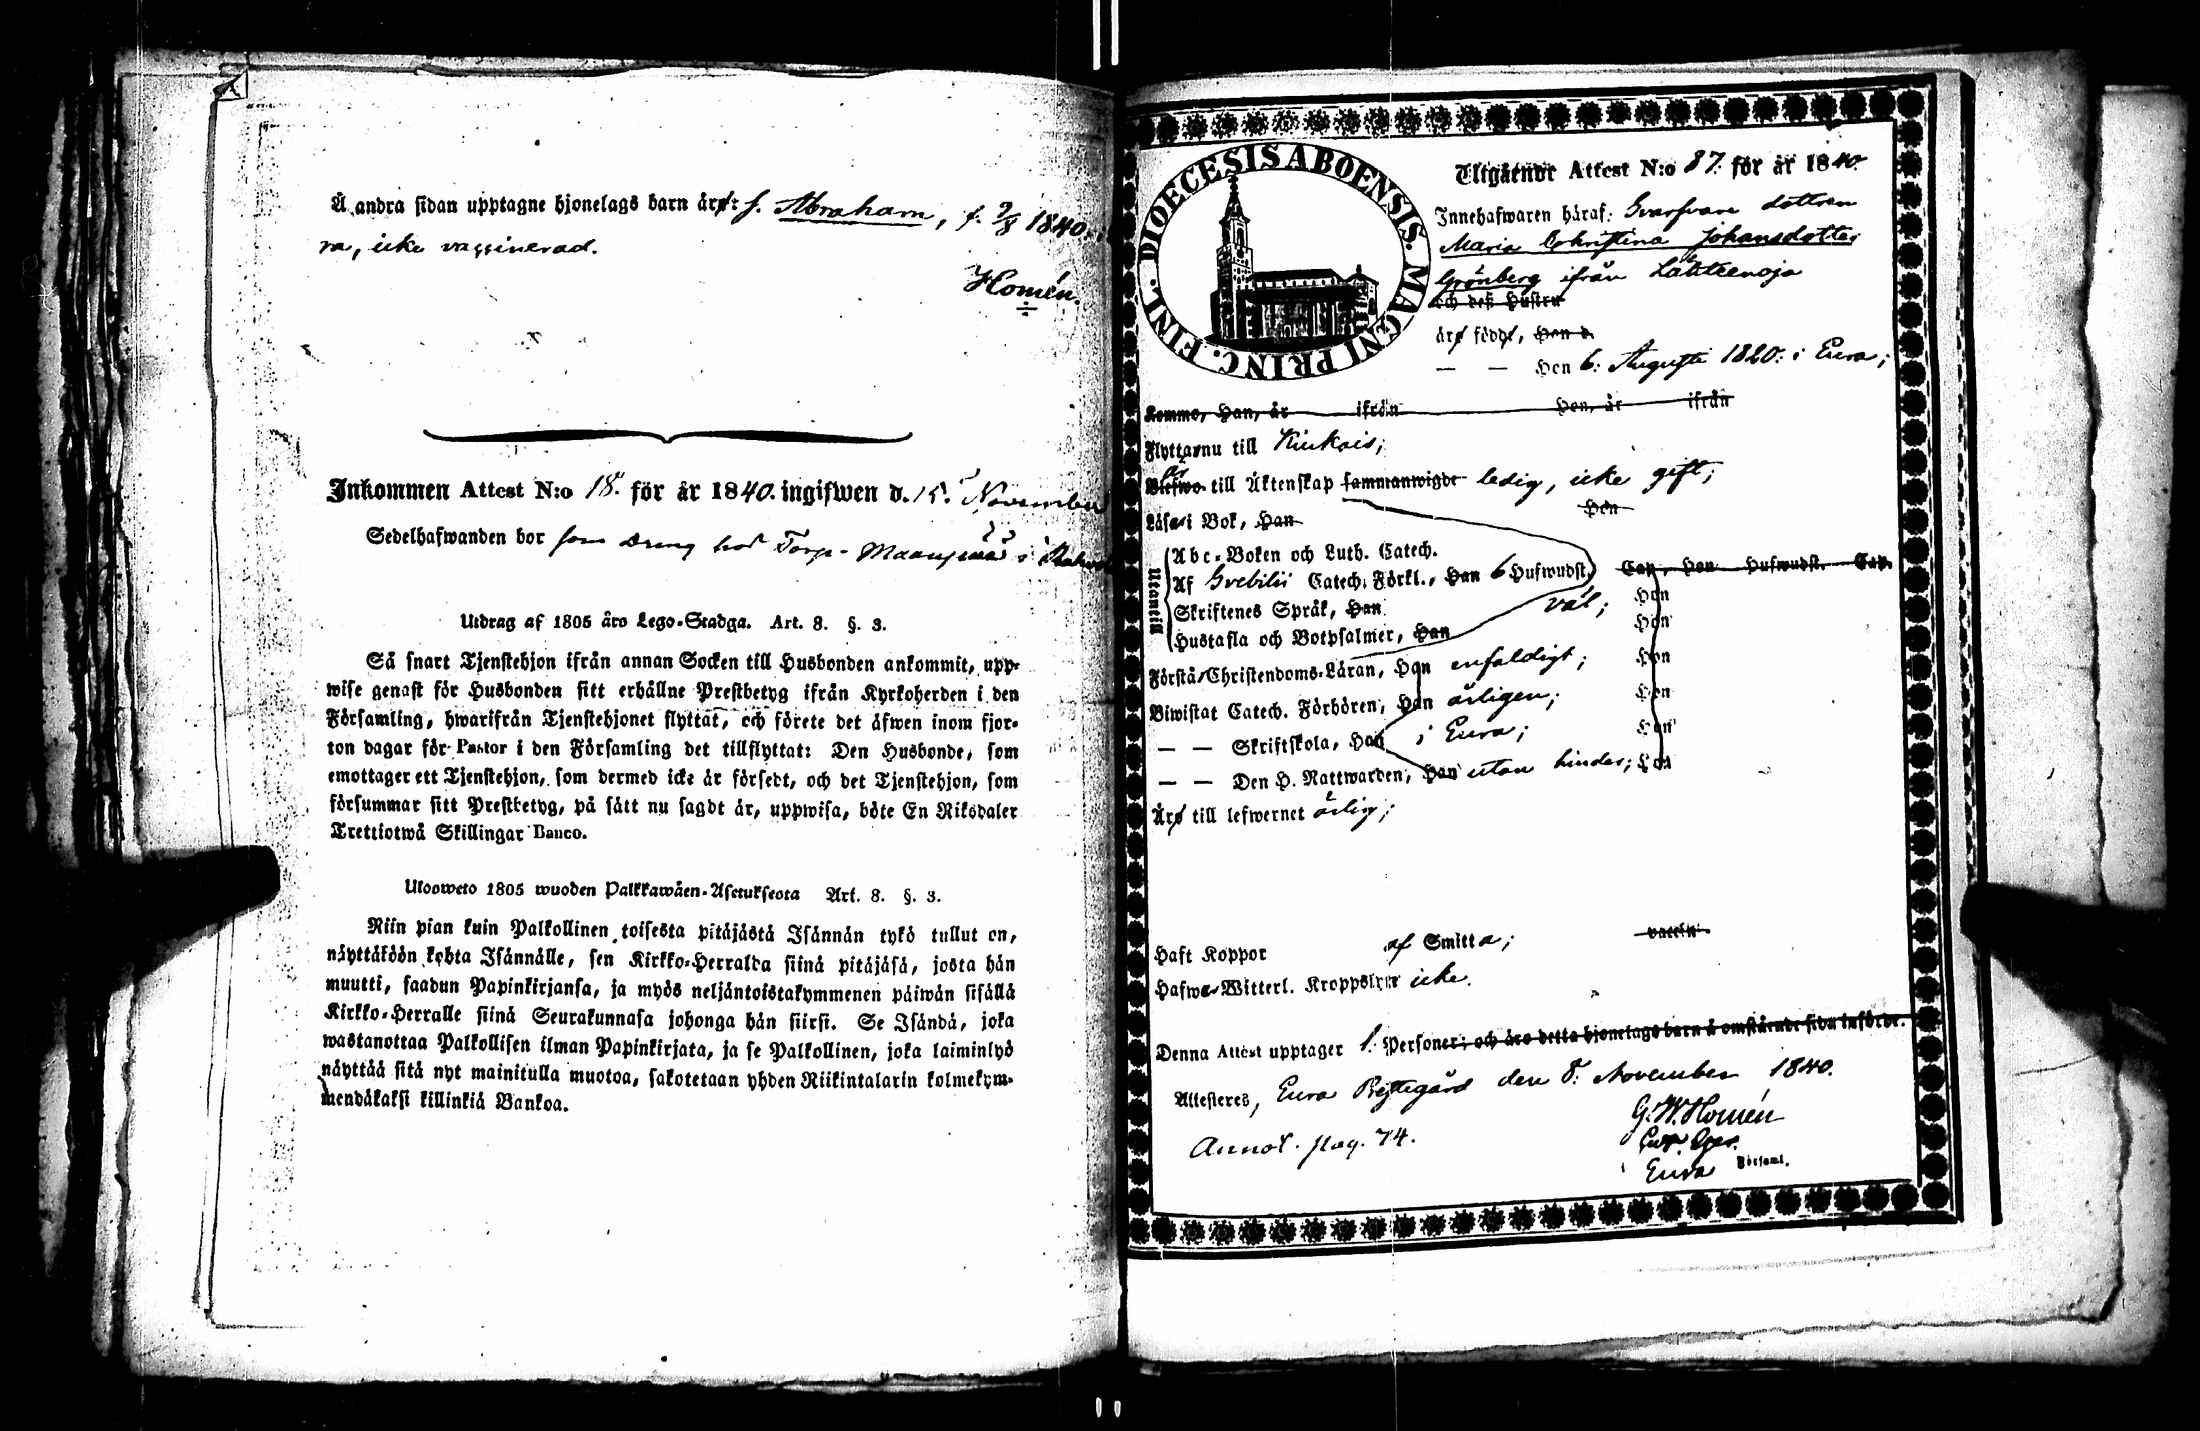 Å andra sidan upptagne hjonelags barn äro: s. Abraham, f. 9/8 1840.
ra, icke vaccinerad.
Homén.
Inkommen Attest N:o 18. för år 1840. ingifwen d. 15. November
Sedelhafwanden bor som dreng hos Torp-
Utdrag af 1805 års Lego-Stadga. Art. 8. §. 3.
Så snart Tjenstehjon ifrån annan Socken till Husbonden ankommit, upp-
wise genast för Husbonden sitt erhållne Prestbetyg ifrån Kyrkoherden i den
Församling, hwarifrån Tjenstehjonet flyttat, och förete det äfwen inom fjor-
ton dagar för Pastor i den Församling det tillflyttat: Den Husbonde, som
emottager ett Tjenstehjon, som dermed icke är försedt, och det Tjenstehjon, som
försummar sitt Prestbetyg, på sätt nu sagdt är, uppwisa, böte En Riksdaler
Trettiotwå Skillingar Banco.
Ulosweto 1805 wuoden Palkkawäen-Asetuksesta Art. 8. §. 3.
Niin pian kuin Palkollinen toisesta pitäjästä Isännän tykö tullut on,
näyttäköön kohta Isännälle, sen Kirkko-Herralda siinä pitäjäsä, josta hän
muutti, saadun Papinkirjansa, ja myös neljäntoistakymmenen päiwän sisällä
Kirkko-Herralle siinä Seurakunnasa johonga hän siirsi. Se Isändä, joka
wastanottaa Palkollisen ilman Papinkirjata, ja se Palkollinen, joka laiminlyö
näyttää sitä nyt mainitulla muotoa, sakotetaan yhden Riikintalarin kolmekym-
mendäkaksi killinkiä Bankoa.
DIOECESIS ABOENSIS. MAGNI PRINC. FINL.
Utgående Attest N:o 87. för år 1840.
Innehafwaren häraf: Svarfvare dottren
Maria Christina Johansdotter
Grönberg ifrån Lähteenoja
och dess Hustru
äro födde, Han d.
— — Hon 6: Augusti 1820: i Eura;
Komne, Han, år ifrån Hon, år ifrån
Flytta nu till Kiukais;
Blefwo till Äktenskap sammanwigde ledig, icke gift;
Läsa i Bok, Han Hon
Utantill
Abc-Boken och Luth. Catech.
Af Svebilii Catech. Förkl., Han 6 Hufwudst. Cap, Hon Hufwudst. Cap.
Skriftenes Språk, Han väl; Hon
Hustafla och Botpsalmer, Han Hon
Förstå Christendoms-Läran, Han enfaldigt; Hon
Biwistat Catech. Förhören, Han årligen; Hon
— — Skriftskola, Han i Eura; Hon
— — Den H. Nattwarden, Han utan hinder; Hon
Äro till lefwernet ärlig;
Haft Koppor af Smitta; vaccin
Hafwa Witterl. Kroppslyte icke.
Denna Attest upptager 1. Personer; och äro detta hjonelags barn å omstående sida införde.
Attesteres, Eura Prestegård den 8: November 1840.
Annot. pag. 74.
G. W. Homén
Eura Församl.